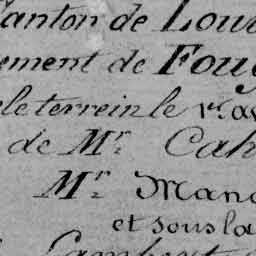 anton de Lou
ement de Foug
le terrein le 1er. av
de Mr. Cah
Mr. Mana
et sous la
Lambert